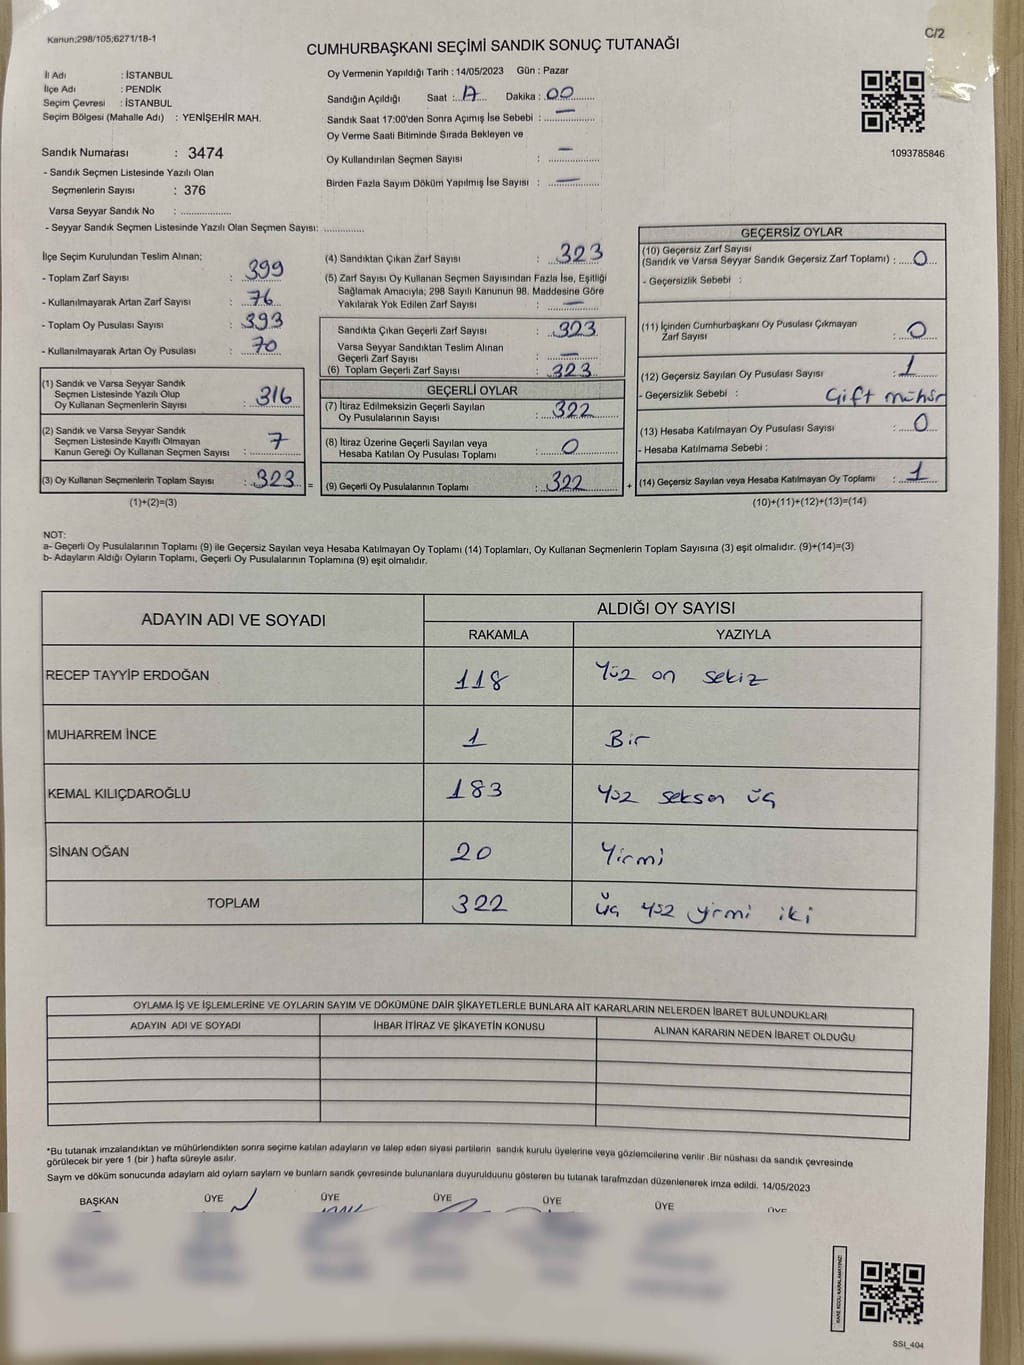 Kanun;298/105;6271/18-1
C/2
CUMHURBAŞKANI SEÇİMİ SANDIK SONUÇ TUTANAĞI
İl Adı : İSTANBUL
İlçe Adı : PENDİK
Seçim Çevresi : İSTANBUL
Seçim Bölgesi (Mahalle Adı) : YENİŞEHİR MAH.
Sandık Numarası : 3474
- Sandık Seçmen Listesinde Yazılı Olan
Seçmenlerin Sayısı : 376
Varsa Seyyar Sandık No : ....................
- Seyyar Sandık Seçmen Listesinde Yazılı Olan Seçmen Sayısı: ...............
Oy Vermenin Yapıldığı Tarih : 14/05/2023 Gün : Pazar
Sandığın Açıldığı Saat : 17 Dakika : 00
Sandık Saat 17:00'den Sonra Açımış İse Sebebi : —
Oy Verme Saati Bitiminde Sırada Bekleyen ve
Oy Kullandırılan Seçmen Sayısı : —
Birden Fazla Sayım Döküm Yapılmış İse Sayısı : —
1093785846
İlçe Seçim Kurulundan Teslim Alınan;
- Toplam Zarf Sayısı : 399
- Kullanılmayarak Artan Zarf Sayısı : 76
- Toplam Oy Pusulası Sayısı : 393
- Kullanılmayarak Artan Oy Pusulası : 70
(1) Sandık ve Varsa Seyyar Sandık
Seçmen Listesinde Yazılı Olup
Oy Kullanan Seçmenlerin Sayısı : 316
(2) Sandık ve Varsa Seyyar Sandık
Seçmen Listesinde Kayıtlı Olmayan
Kanun Gereği Oy Kullanan Seçmen Sayısı : 7
(3) Oy Kullanan Seçmenlerin Toplam Sayısı : 323
(1)+(2)=(3)
=
(4) Sandıktan Çıkan Zarf Sayısı : 323
(5) Zarf Sayısı Oy Kullanan Seçmen Sayısından Fazla İse, Eşitliği
Sağlamak Amacıyla; 298 Sayılı Kanunun 98. Maddesine Göre
Yakılarak Yok Edilen Zarf Sayısı : —
Sandıkta Çıkan Geçerli Zarf Sayısı : 323
Varsa Seyyar Sandıktan Teslim Alınan
Geçerli Zarf Sayısı : —
(6) Toplam Geçerli Zarf Sayısı : 323
GEÇERLİ OYLAR
(7) İtiraz Edilmeksizin Geçerli Sayılan
Oy Pusulalarının Sayısı : 322
(8) İtiraz Üzerine Geçerli Sayılan veya
Hesaba Katılan Oy Pusulası Toplamı : 0
(9) Geçerli Oy Pusulalarının Toplamı : 322
+
GEÇERSİZ OYLAR
(10) Geçersiz Zarf Sayısı
(Sandık ve Varsa Seyyar Sandık Geçersiz Zarf Toplamı) : 0
- Geçersizlik Sebebi :
(11) İçinden Cumhurbaşkanı Oy Pusulası Çıkmayan
Zarf Sayısı : 0
(12) Geçersiz Sayılan Oy Pusulası Sayısı : 1
- Geçersizlik Sebebi : Çift mühür
(13) Hesaba Katılmayan Oy Pusulası Sayısı : 0
- Hesaba Katılmama Sebebi :
(14) Geçersiz Sayılan veya Hesaba Katılmayan Oy Toplamı : 1
(10)+(11)+(12)+(13)=(14)
NOT:
a- Geçerli Oy Pusulalarının Toplamı (9) ile Geçersiz Sayılan veya Hesaba Katılmayan Oy Toplamı (14) Toplamları, Oy Kullanan Seçmenlerin Toplam Sayısına (3) eşit olmalıdır. (9)+(14)=(3)
b- Adayların Aldığı Oyların Toplamı, Geçerli Oy Pusulalarının Toplamına (9) eşit olmalıdır.
ADAYIN ADI VE SOYADI ALDIĞI OY SAYISI
RAKAMLA YAZIYLA
RECEP TAYYİP ERDOĞAN 118 Yüz on sekiz
MUHARREM İNCE 1 Bir
KEMAL KILIÇDAROĞLU 183 Yüz seksen üç
SİNAN OĞAN 20 Yirmi
TOPLAM 322 Üç yüz yirmi iki
OYLAMA İŞ VE İŞLEMLERİNE VE OYLARIN SAYIM VE DÖKÜMÜNE DAİR ŞİKAYETLERLE BUNLARA AİT KARARLARIN NELERDEN İBARET BULUNDUKLARI
ADAYIN ADI VE SOYADI İHBAR İTİRAZ VE ŞİKAYETİN KONUSU ALINAN KARARIN NEDEN İBARET OLDUĞU
*Bu tutanak imzalandıktan ve mühürlendikten sonra seçime katılan adayların ve talep eden siyasi partilerin sandık kurulu üyelerine veya gözlemcilerine verilir .Bir nüshası da sandık çevresinde
görülecek bir yere 1 (bir ) hafta süreyle asılır.
Sayım ve döküm sonucunda adaylarn ald oylarn saylarn ve bunlarn sandk çevresinde bulunanlara duyurulduunu gösteren bu tutanak tarafmzdan düzenlenerek imza edildi. 14/05/2023
BAŞKAN ÜYE ÜYE ÜYE ÜYE ÜYE ÜYE
SSI_404